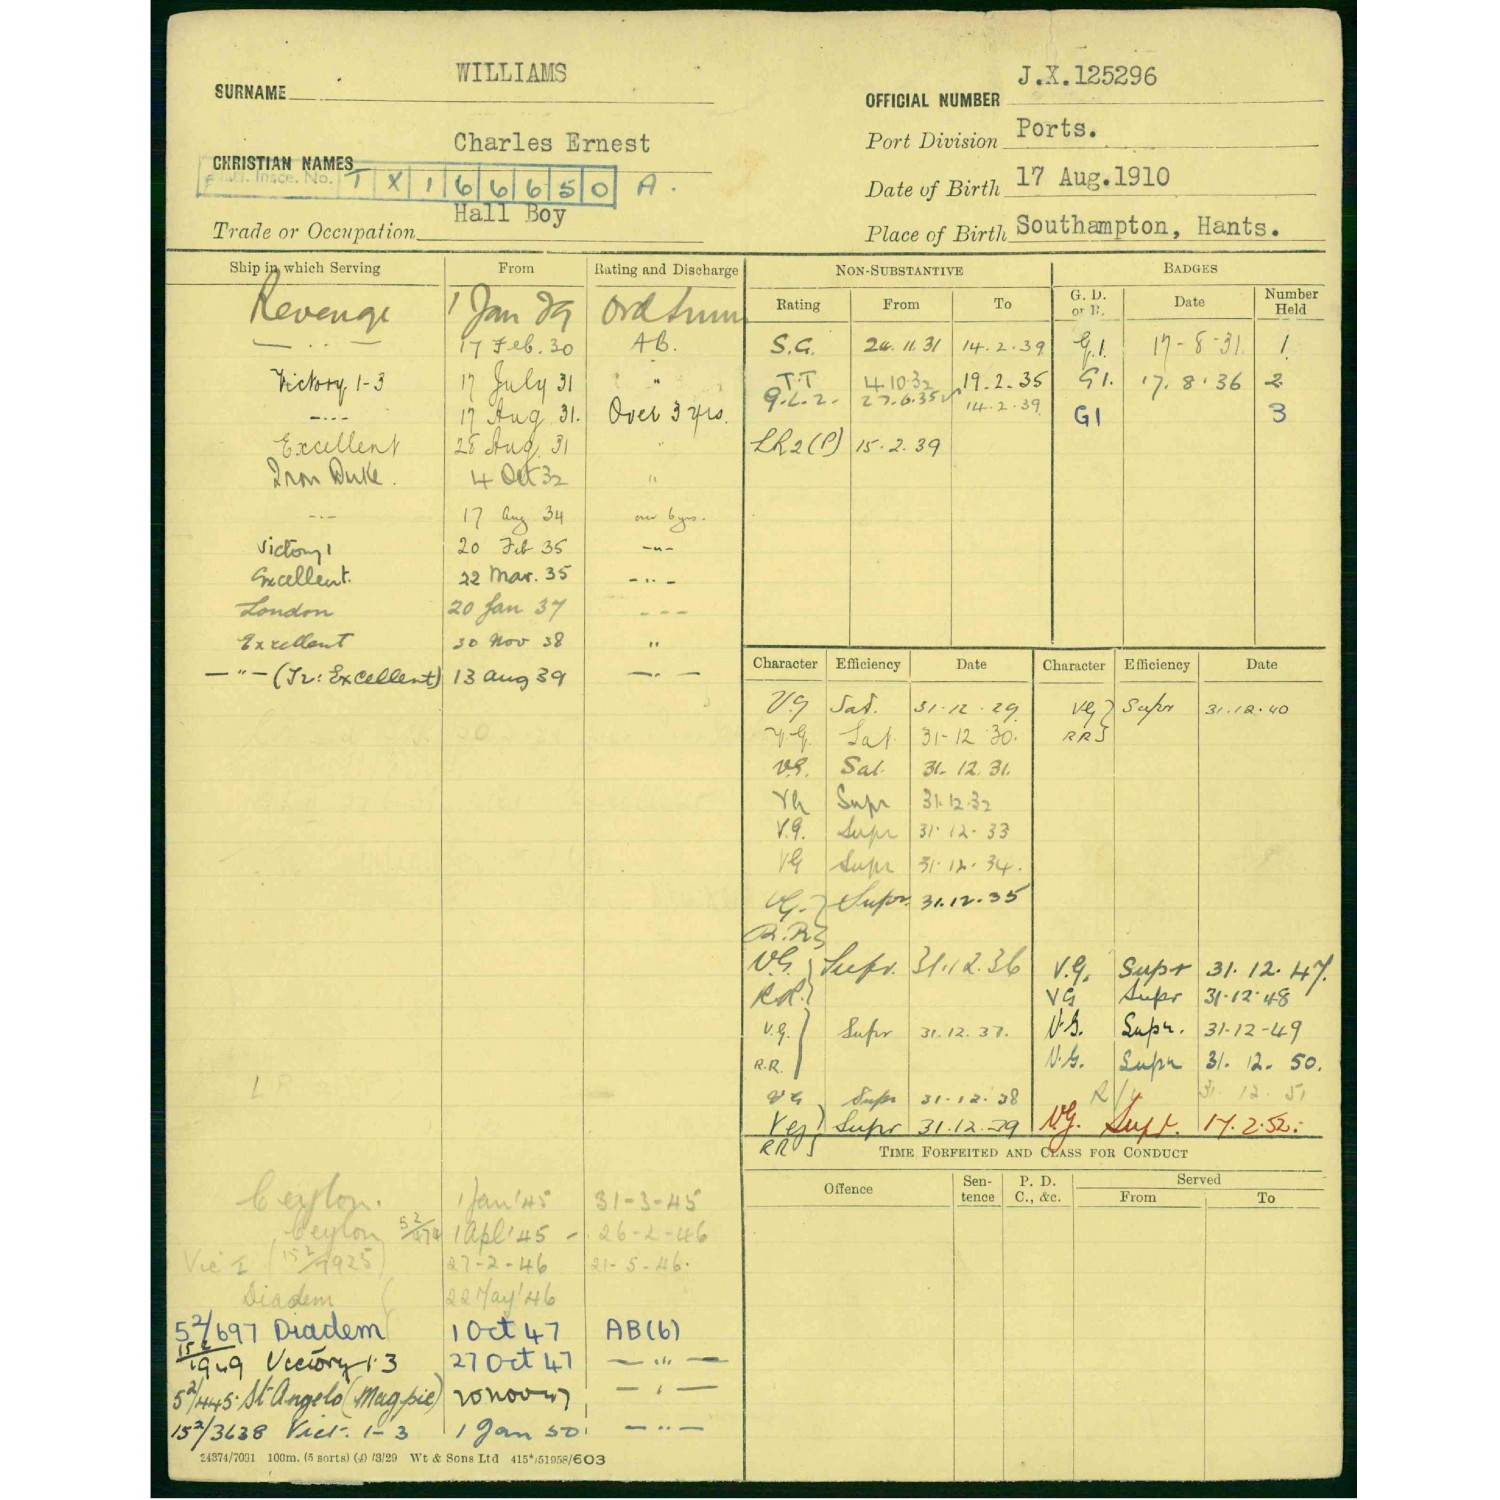 WILLIAMS
SURNAME
J.X.125296
OFFICIAL NUMBER
Charles Ernest
CHRISTIAN NAMES
Ports.
Port Division
Insce. No. T X 1 6 6 6 5 0 A.
17 Aug.1910
Date of Birth
Hall Boy
Trade or Occupation
Southampton, Hants.
Place of Birth
Ship in which Serving From Rating and Discharge
Revenge 1 Jan 29 Ord
— .. — 17 Feb. 30 AB.
Victory 1-3 17 July 31 "
---- 17 Aug 31. Over 3 yrs.
Excellent 28 Aug. 31 "
Iron Duke. 4 Oct 32 "
-..- 17 Aug 34 over 6 yrs.
Victory 1 20 Feb 35 -"-
Excellent. 22 Mar. 35 -..-
London 20 Jan 37 ---
Excellent 30 Nov 38 "
— " — (Tr: Excellent) 13 Aug 39 —.. —
Ceylon. 1 Jan '45 31-3-45
Ceylon 5²/474 1 Apl '45 - 26-2-46
Vic I (15²/1925) 27-2-46 21-5-46.
Diadem ( 22 May '46
5²/697 Diadem 1 Oct 47 AB(6)
15²/1949 Victory 1.3 27 Oct 47 — ... —
5²/445 St Angelo (Magpie) 20 Nov 47 — . —
15²/3638 Vict. 1-3 1 Jan 50 — .. —
24374/7091 100m. (5 sorts) /3/29 Wt & Sons Ltd 415*/51958/603
NON-SUBSTANTIVE
Rating From To
S.G. 24.11.31 14.2.39
T.T 4.10.32 19.2.35
G.L.2. 27.6.35 14.2.39
LR2(P) 15.2.39
BADGES
G. D. or R. Date Number Held
G.1. 17-8-31. 1.
G1. 17.8.36 2.
G1 3
Character Efficiency Date
V.G Sat. 31.12.29
V.G. Sat. 31-12 30.
VG. Sat. 31.12.31.
VG Supr 31.12.32
V.G. Supr 31.12.33
VG Supr 31.12.34.
VG. Supr. 31.12.35
R.R
V.G. Supr. 31.12.36
R.R.
V.G. Supr 31.12.37.
R.R.
VG Supr 31.12.38
VG Supr 31.12.39
RR
Character Efficiency Date
VG Supr 31.12.40
RR
V.G. Supr 31.12.47.
VG Supr 31.12.48
V.G. Supr. 31-12-49
V.G. Supr 31.12.50.
31.12.51
V.G. Supr. 17.2.52.
TIME FORFEITED AND CLASS FOR CONDUCT
Offence Sentence P. D. C., &c. Served
From To